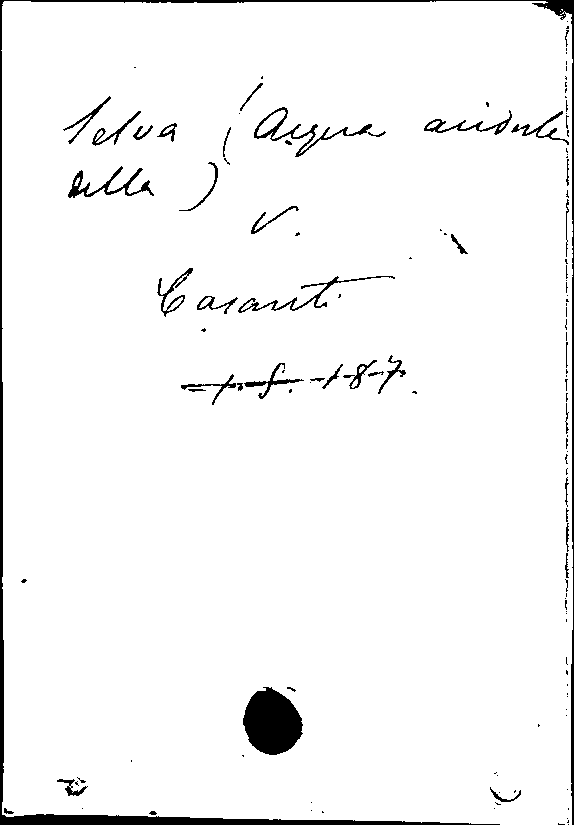 Selva (Acqua acidula
della)
V.
Casanti
1. f. 187.